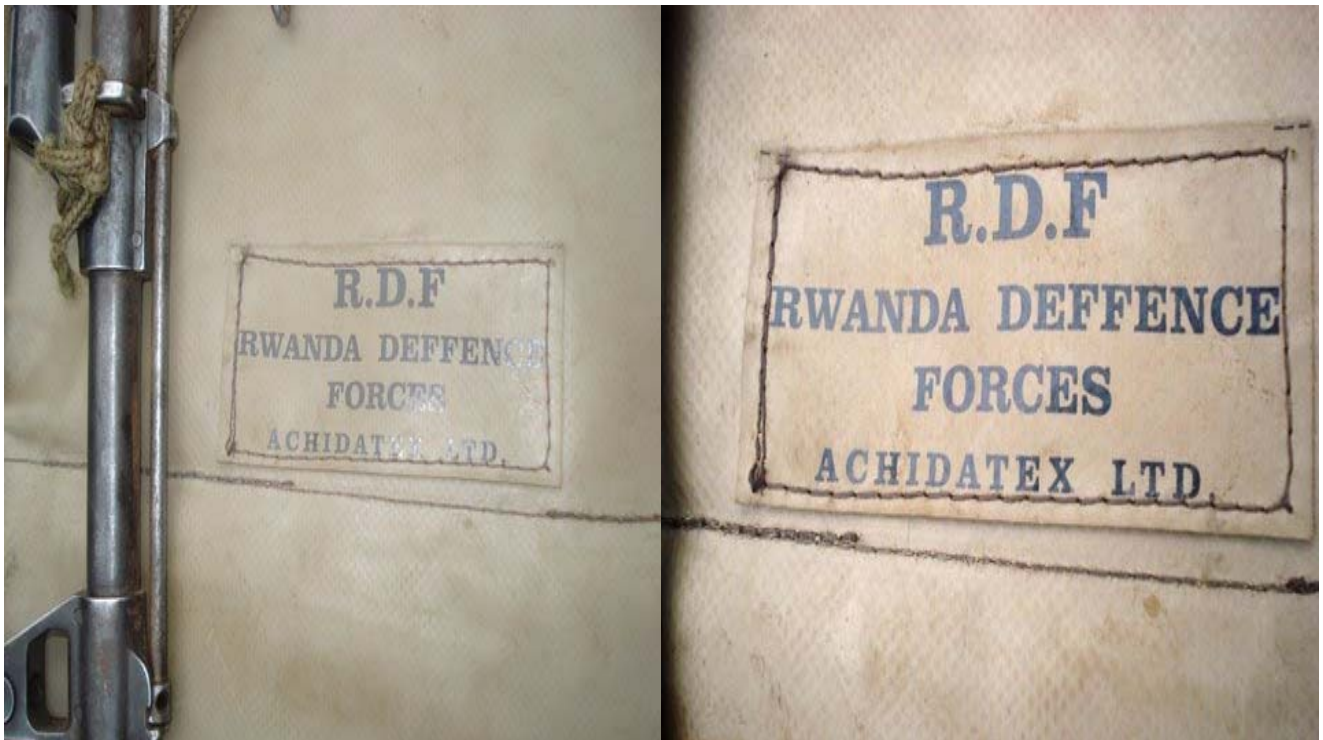 R.D.F
RWANDA DEFFENCE
FORCES
ACHIDATEX LTD.
R.D.F
RWANDA DEFFENCE
FORCES
ACHIDATEX LTD.